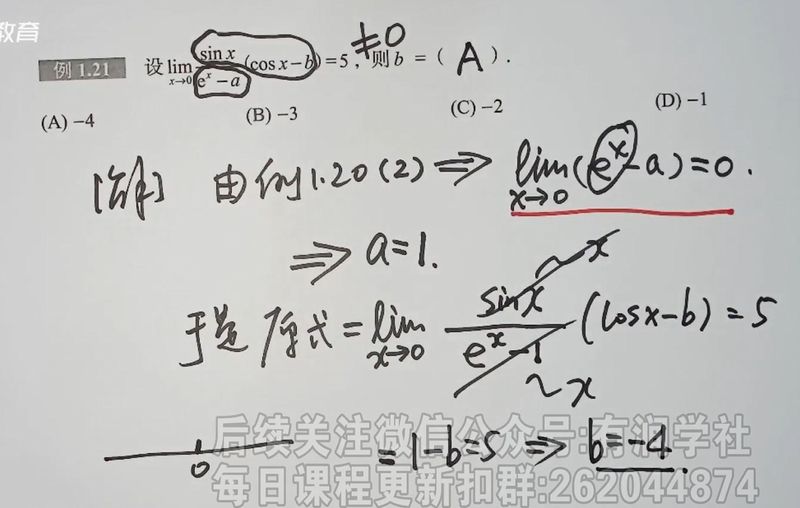 教育
例 1.21 设 lim x→0 sin x / (e^x − a) (cos x − b) = 5, ≠0 则 b = ( A ).
(A) −4 (B) −3 (C) −2 (D) −1
[解] 由例1.20(2) ⟹ lim x→0 (e^x − a) = 0.
⟹ a = 1.
于是 原式 = lim x→0 sinx / (e^x − 1) (cosx − b) = 5
~x
~x
0
= 1 − b = 5 ⟹ b = −4.
后续关注微信公众号:有润学社
每日课程更新扣群:262044874